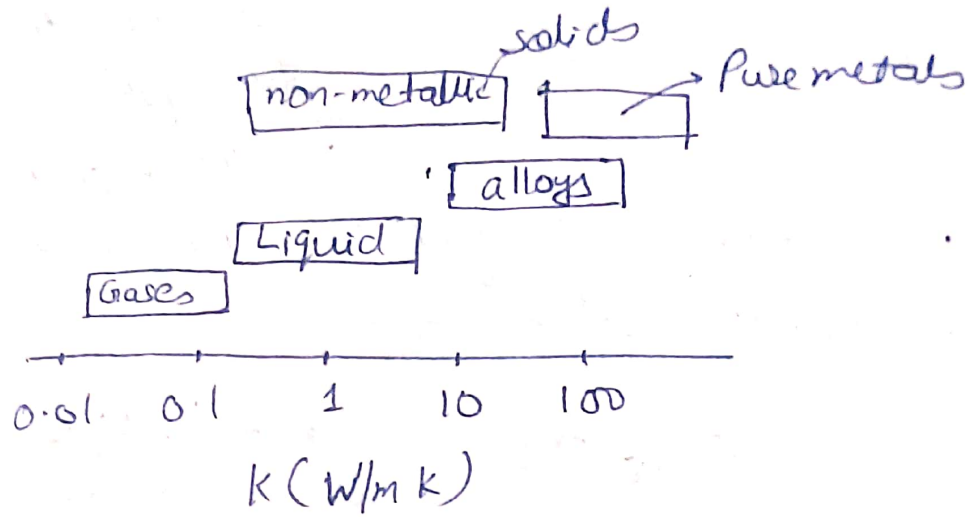 solids
non-metallic
Pure metals
alloys
Liquid
Gases
0.01 0.1 1 10 100
K (W/m K)